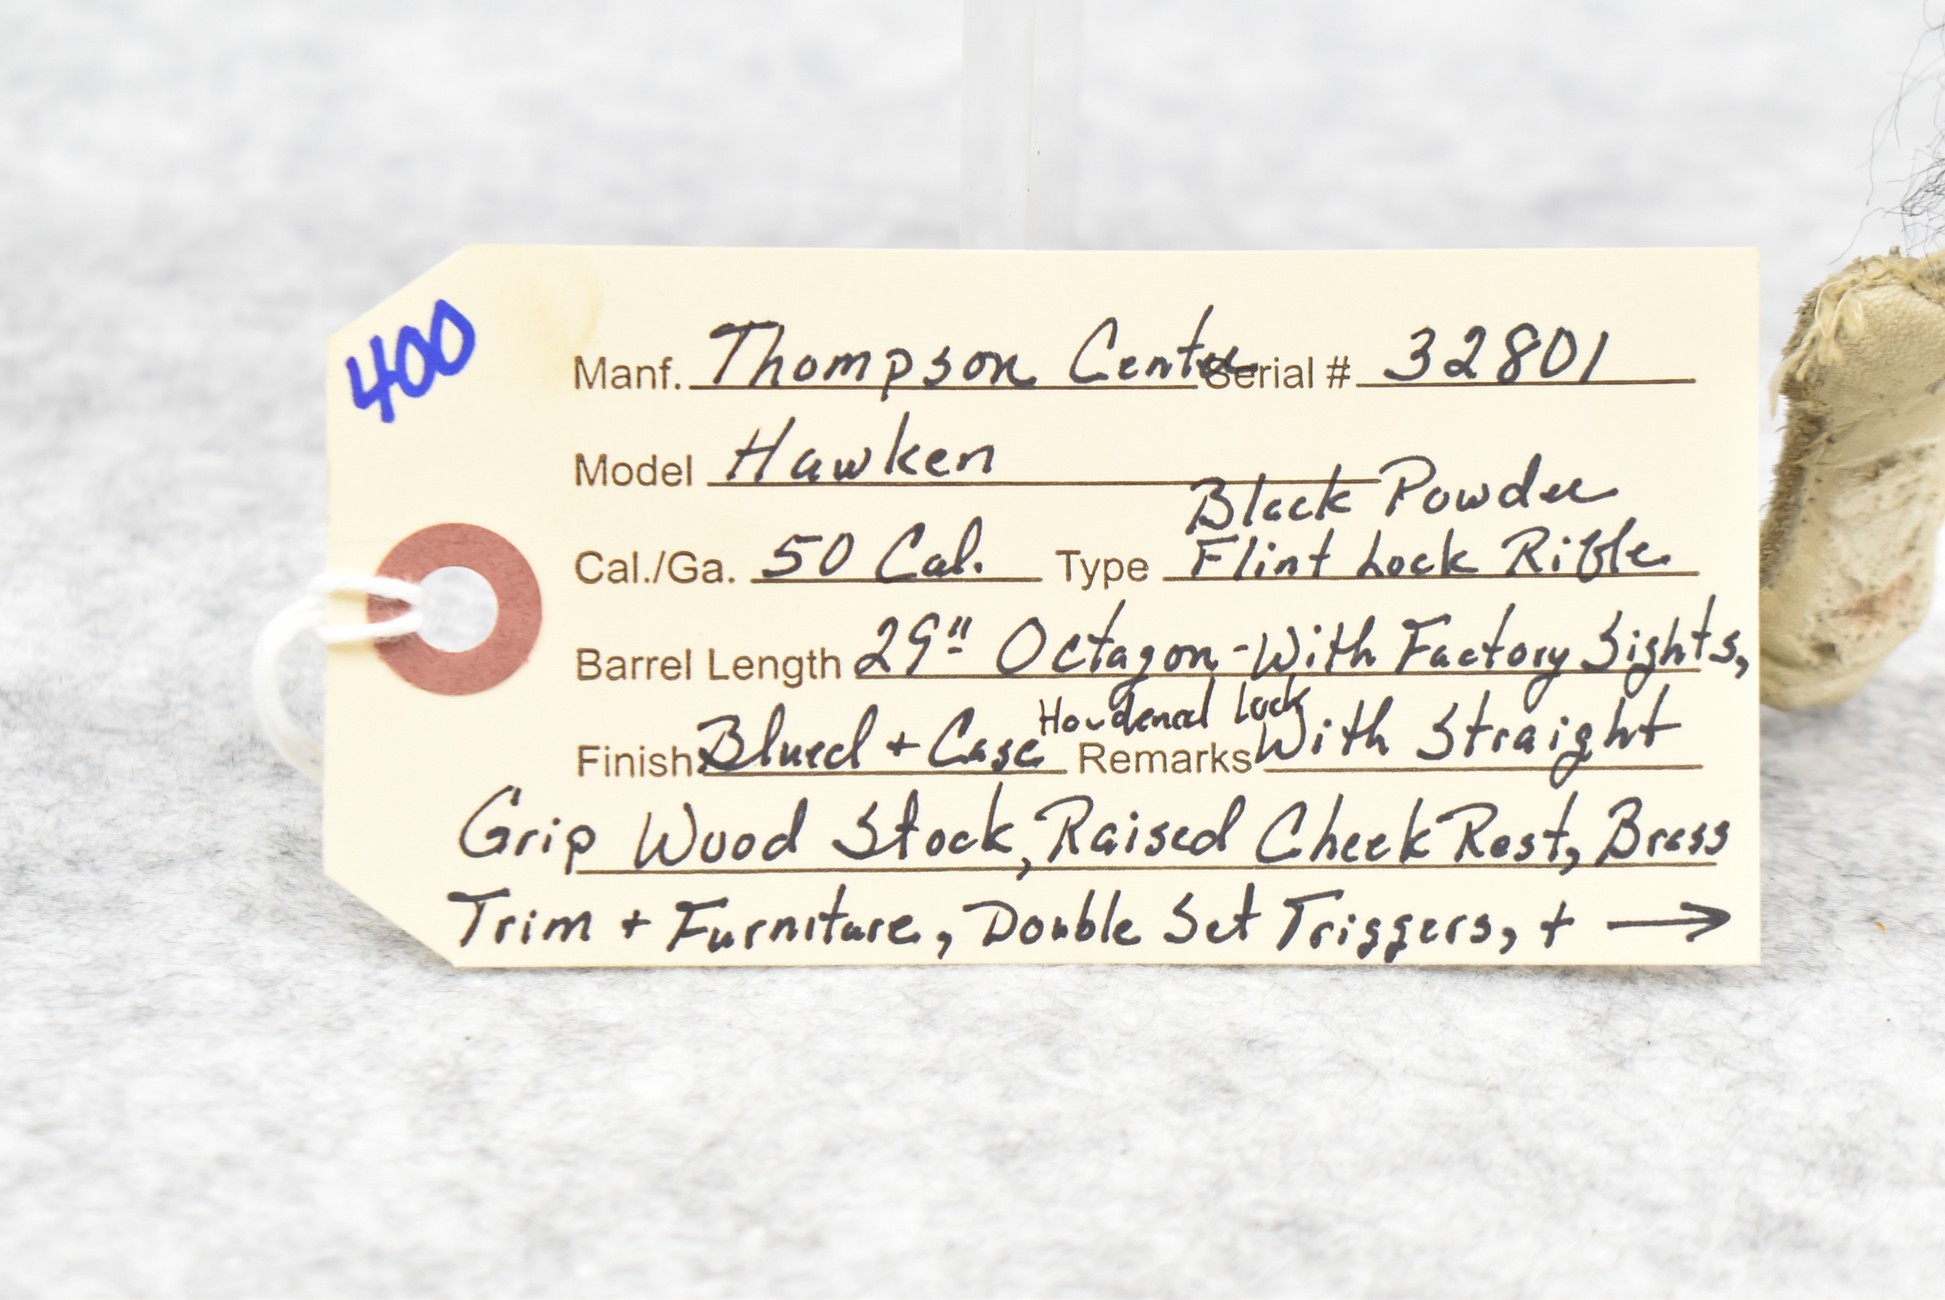 400
Manf. Thompson Center Serial # 32801
Model Hawken
Black Powder
Cal./Ga. 50 Cal. Type Flint Lock Rifle
Barrel Length 29" Octagon - With Factory Sights,
Hardened Lock
Finish Blued + Case Remarks With Straight
Grip Wood Stock, Raised Cheek Rest, Brass
Trim + Furniture, Double Set Triggers, + →